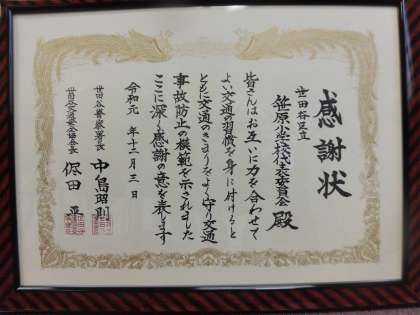 感謝状
世田谷区立
笹原小学校代表委員会 殿
皆さんはお互いに力を合わせて
よい交通の習慣を身に付けると
ともに交通のきまりをよく守り交通
事故防止の模範を示されました
ここに深く感謝の意を表します
令和元年十二月三日
世田谷警察署長 中島昭則
世田谷交通安全協会長